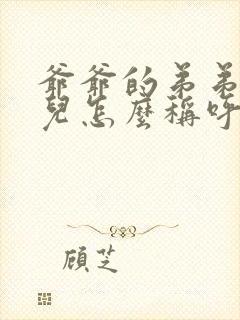 爺爺的弟弟
兒怎麼稱呼
顧芝